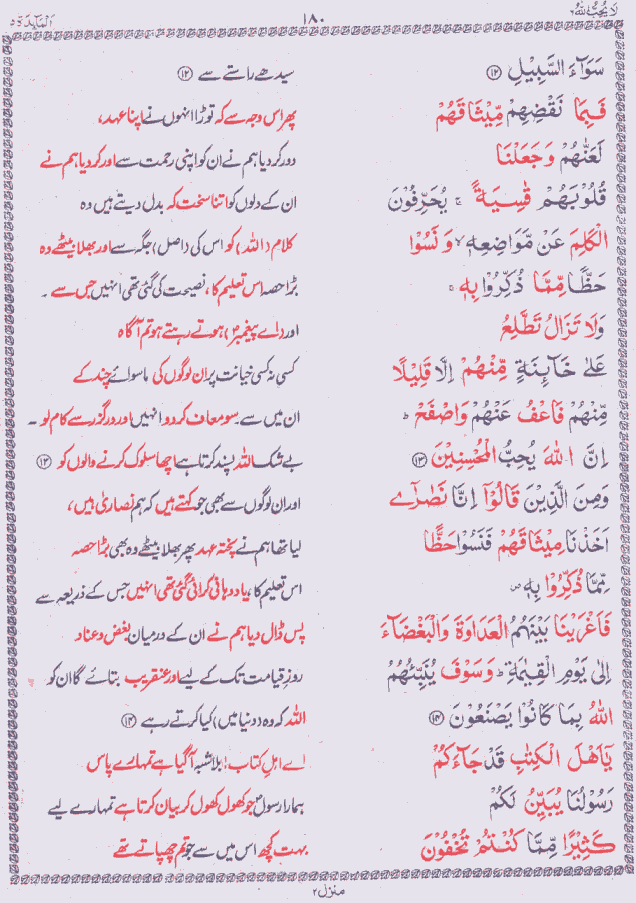 لَا يُحِبُّ اللّٰهُ ٦
١٨٠
اَلْمَآئِدَة ٥
سَوَآءَ السَّبِيْلِ ﴿۱۲﴾
سیدھے راستے سے ﴿۱۲﴾
فَبِمَا نَقْضِهِمْ مِّيْثَاقَهُمْ
پھر اس وجہ سے کہ توڑا انہوں نے اپنا عہد،
لَعَنّٰهُمْ وَجَعَلْنَا
دور کر دیا ہم نے ان کو اپنی رحمت سے اور کر دیا ہم نے
قُلُوْبَهُمْ قٰسِيَةً ۚ يُحَرِّفُوْنَ
ان کے دلوں کو اتنا سخت کہ بدل دیتے ہیں وہ
الْكَلِمَ عَنْ مَّوَاضِعِهٖ ۙ وَنَسُوْا
کلام (اللہ) کو اس کی (اصل) جگہ سے اور بھلا بیٹھے وہ
حَظًّا مِّمَّا ذُكِّرُوْا بِهٖ ۚ
بڑا حصہ اس تعلیم کا، نصیحت کی گئی تھی انہیں جس سے ۔
وَلَا تَزَالُ تَطَّلِعُ
اور (اے پیغمبر) ہوتے رہتے ہو تم آگاہ
عَلٰى خَآئِنَةٍ مِّنْهُمْ اِلَّا قَلِيْلًا
کسی نہ کسی خیانت پر ان لوگوں کی ماسوائے چند کے
مِّنْهُمْ فَاعْفُ عَنْهُمْ وَاصْفَحْ ؕ
ان میں سے ۔ سو معاف کر دو انہیں اور درگزر سے کام لو ۔
اِنَّ اللّٰهَ يُحِبُّ الْمُحْسِنِيْنَ ﴿۱۳﴾
بے شک اللہ پسند کرتا ہے اچھا سلوک کرنے والوں کو ﴿۱۳﴾
وَمِنَ الَّذِيْنَ قَالُوْٓا اِنَّا نَصٰرٰٓى
اور ان لوگوں سے بھی جو کہتے ہیں کہ ہم نصاریٰ ہیں،
اَخَذْنَا مِيْثَاقَهُمْ فَنَسُوْا حَظًّا
لیا تھا ہم نے پختہ عہد پھر بھلا بیٹھے وہ بھی بڑا حصہ
مِّمَّا ذُكِّرُوْا بِهٖ ۪
اس تعلیم کا، یاد دہانی کرائی گئی تھی انہیں جس کے ذریعہ سے
فَاَغْرَيْنَا بَيْنَهُمُ الْعَدَاوَةَ وَالْبَغْضَآءَ
پس ڈال دیا ہم نے ان کے درمیان بغض و عناد
اِلٰى يَوْمِ الْقِيٰمَةِ ؕ وَسَوْفَ يُنَبِّئُهُمُ
روزِ قیامت تک کے لیے اور عنقریب بتائے گا ان کو
اللّٰهُ بِمَا كَانُوْا يَصْنَعُوْنَ ﴿۱۴﴾
اللہ کہ وہ (دنیا میں) کیا کرتے رہے ﴿۱۴﴾
يٰٓاَهْلَ الْكِتٰبِ قَدْ جَآءَكُمْ
اے اہلِ کتاب! بلاشبہ آ گیا ہے تمہارے پاس
رَسُوْلُنَا يُبَيِّنُ لَكُمْ
ہمارا رسول جو کھول کھول کر بیان کرتا ہے تمہارے لیے
كَثِيْرًا مِّمَّا كُنْتُمْ تُخْفُوْنَ
بہت کچھ اس میں سے جو تم چھپاتے تھے
منزل ۲